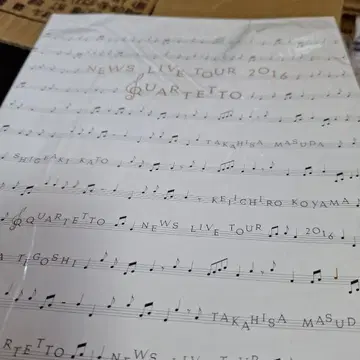 NEWS LIVE TOUR 2016
QUARTETTO
TAKAHISA MASUDA
SHIGEAKI KATO
KEIICHIRO KOYAMA
QUARTETTO NEWS LIVE TOUR 2016
A TEGOSHI TAKAHISA MASUD
QUARTETTO NEWS LIVE TOUR